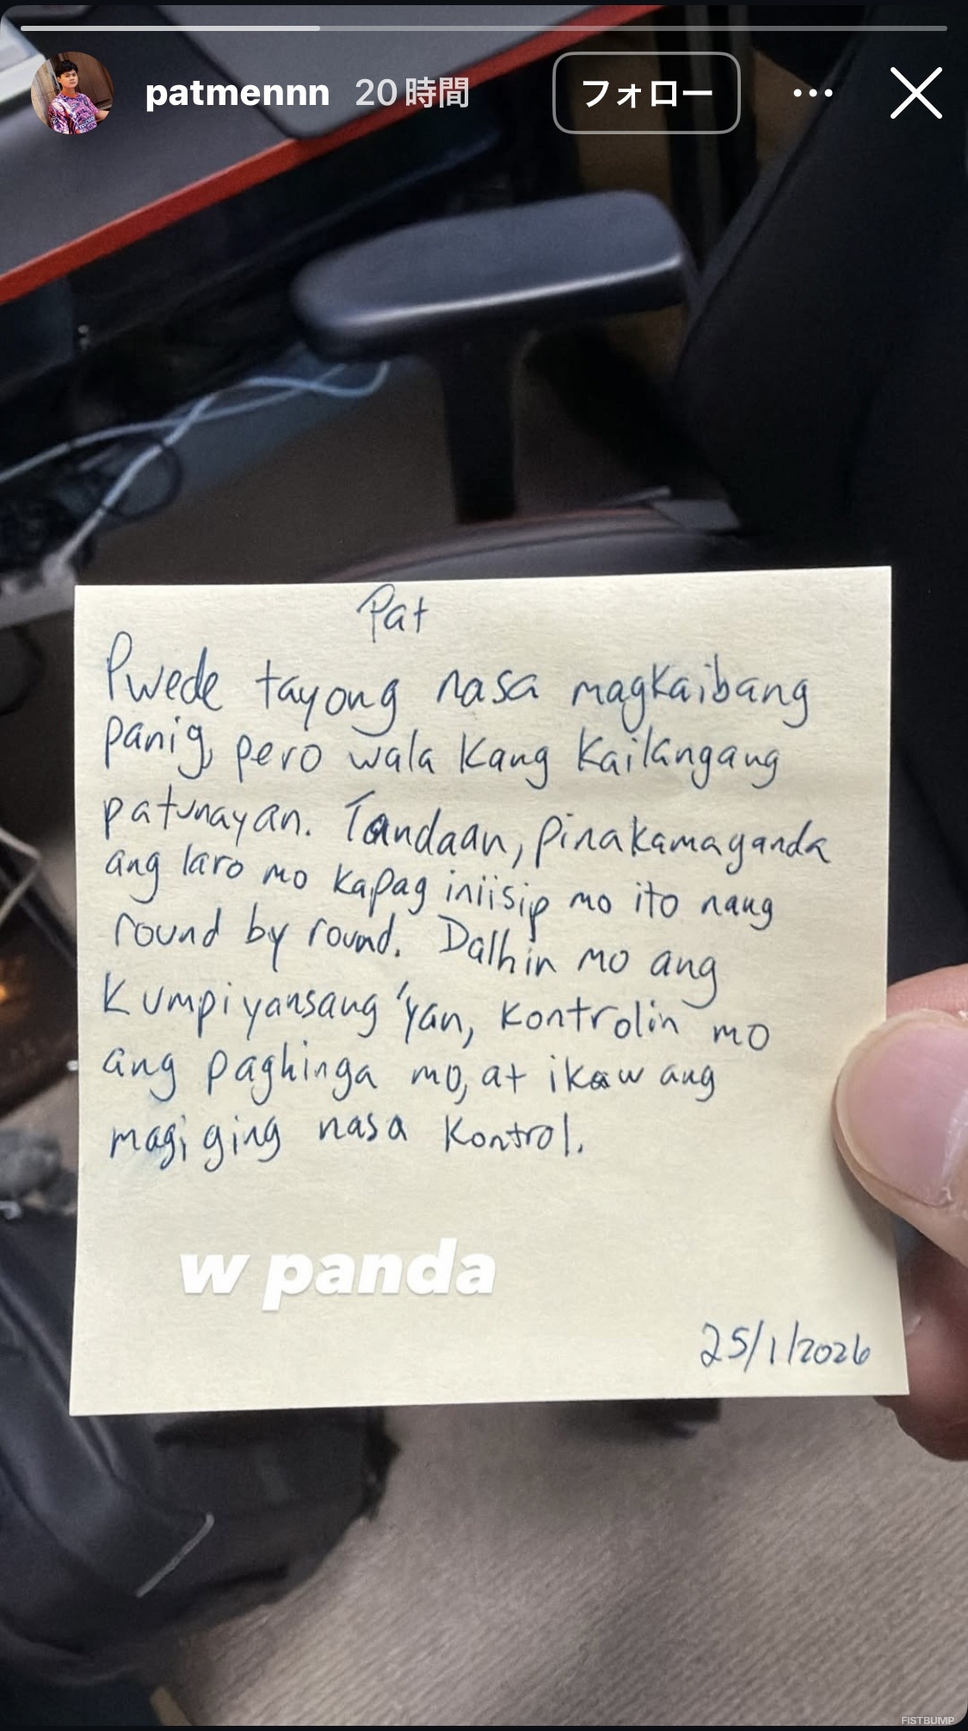 patmennn 20時間 フォロー
Pat
Pwede tayong nasa magkaibang
panig, pero wala kang kailangang
patunayan. Tandaan, pinakamaganda
ang laro mo kapag iniisip mo ito nang
round by round. Dalhin mo ang
kumpiyansang 'yan, kontrolin mo
ang paghinga mo, at ikaw ang
magiging nasa kontrol.
w panda
25/1/2026
FISTBUMP